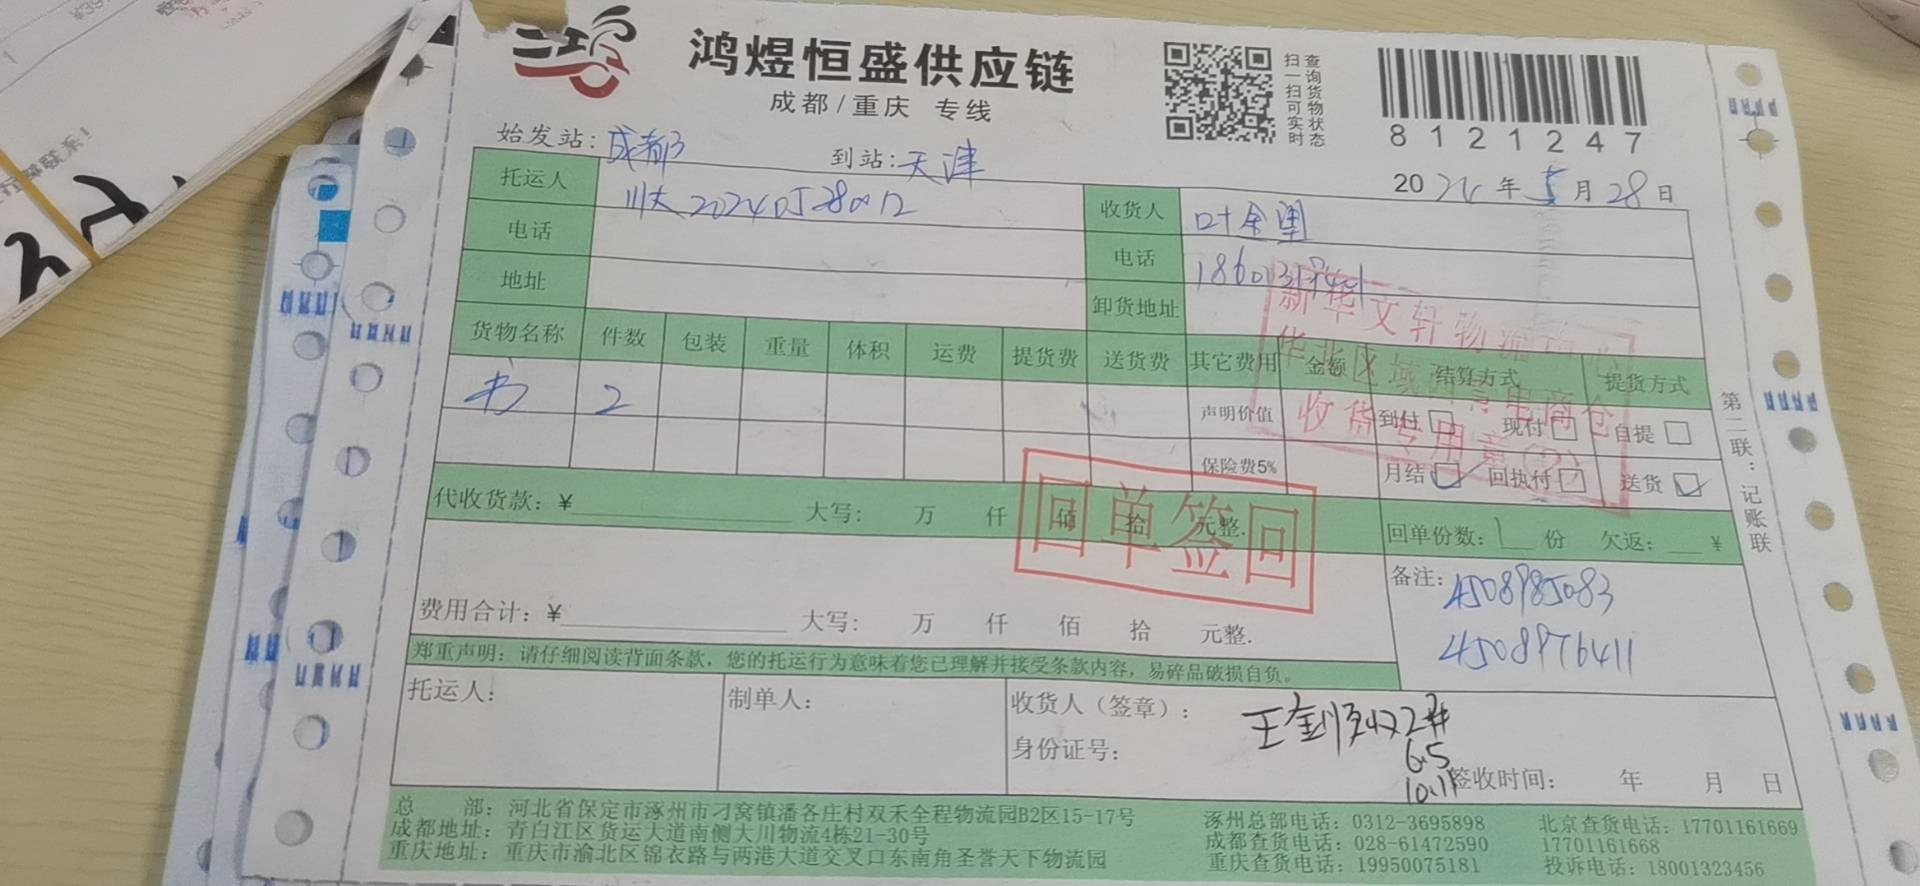 鸿煜恒盛供应链
成都/重庆 专线
扫一扫可实时
查询货物状态
8121247
始发站:成都
到站:天津
2024年5月28日
托运人
川大202405280012
收货人
叶金国
电话
电话
地址
卸货地址
货物名称 件数 包装 重量 体积 运费 提货费 送货费 其它费用 金额 结算方式 提货方式
书 2
声明价值 到付 现付 自提
保险费5% 月结 回执付 送货
新华文轩物流
华北区域 电商仓
收货专用章
代收货款:¥ 大写: 万 仟 佰 拾 元整.
回单签回
回单份数:1 份 欠返: ¥
费用合计:¥ 大写: 万 仟 佰 拾 元整.
备注:4508985083
4508976411
郑重声明:请仔细阅读背面条款,您的托运行为意味着您已理解并接受条款内容,易碎品破损自负。
托运人:
制单人:
收货人(签章):
王剑 收2件
身份证号:
6.5
10.11
签收时间: 年 月 日
第二联:记账联
总 部:河北省保定市涿州市刁窝镇潘各庄村双禾全程物流园B2区15-17号
涿州总部电话:0312-3695898
北京查货电话:17701161669
成都地址:青白江区货运大道南侧大川物流4栋21-30号
成都查货电话:028-61472590
17701161668
重庆地址:重庆市渝北区锦衣路与两港大道交叉口东南角圣誉天下物流园
重庆查货电话:19950075181
投诉电话:18001323456